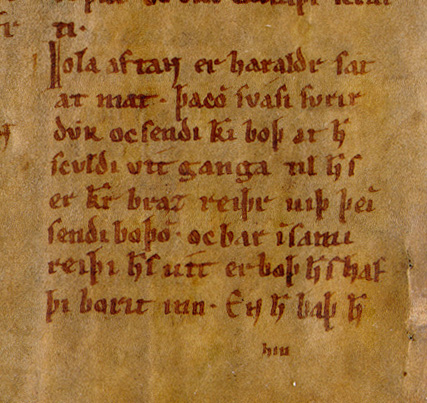 ti·
Iola aftaɴ er haraldr sat
at mat· þacō svasi fyrir
dyʀ oc sendi k̄i boþ at h̄
sculdi vtt ganga til h̄s
er k̄r braz reiþr uiþ þeī
sendiboþō· oc bar īsami
reiþi h̄s utt er boþ h̄s haf
þi borit inn· Eɴ h̄ baþ h̄
hiu